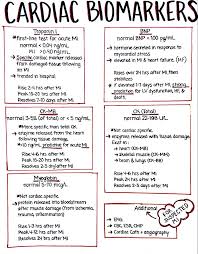 CARDIAC BIOMARKERS
Troponin I
*first-line test for acute MI
normal < 0.04 ng/mL
> 0.40 ng/mL = MI
Specific cardiac marker released
from damaged tissue following
an MI
treated in hospital
Rises 2-4 hrs after MI
Peak 15-20 hrs after MI
Resolves days after MI
BNP
normal < 100 pg/mL
hormone secreted in response to
myocardial stress
elevated in MI, heart failure (HF)
Rises over 24 hrs after MI, then
stabilizes
if elevated 7 days after MI
predictive for LV dysfunction, HF,
death
CK-MB
normal
(Cardiac specific than CK
enzyme released from the heart
following tissue damage.
> 10 ng/mL predictive for acute MI
Rises 4-6 hrs after MI
Peak 12-24 hrs after MI
Resolves days after MI
CK (Total)
normal 22-198 U/L
Not cardiac specific
enzyme released with tissue damage.
Exist in:
heart (CK-MB)
skeletal muscle (CK-MM)
lungs, brain (CK-BB)
Rises 4-6 hrs after MI
Peak 24 hrs after MI
Resolves 3-4 days after MI
Myoglobin
normal
Not cardiac specific
oxygen-binding protein found in
released into bloodstream
after tissue damage from
an MI
Rises 1-4 hrs after MI
Peak hrs after MI
Resolves hrs after MI
Additional
EKG
CXR, CBC, CMP
Cardiac Cath + angiography
FOR
SUSPECTED
MI